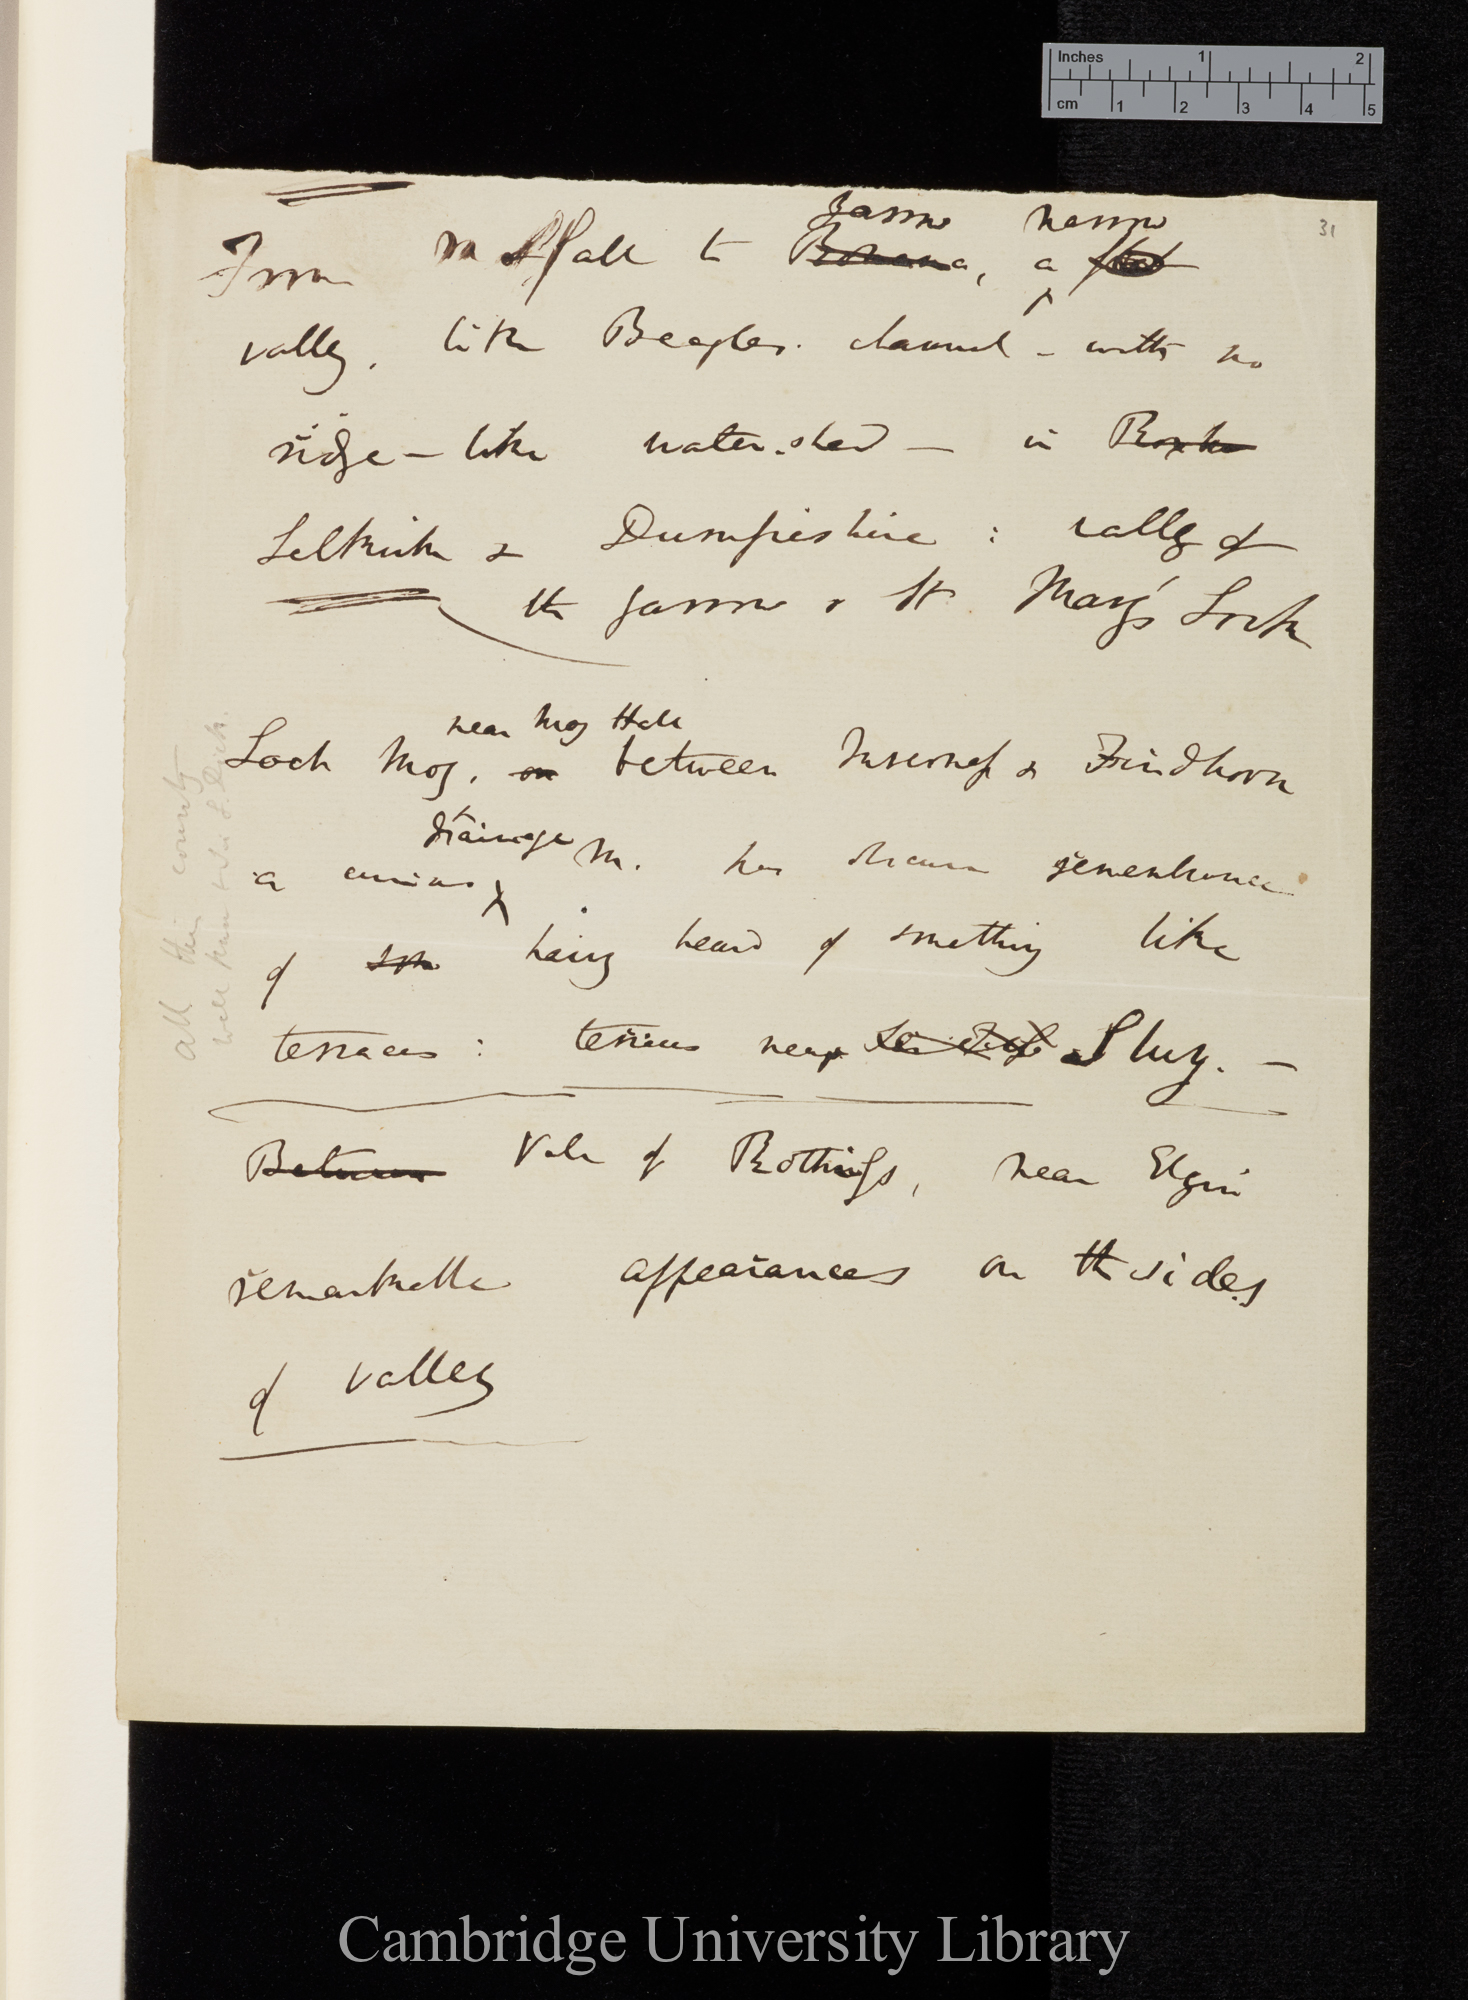 Inches 1 2
cm 1 2 3 4 5
31
Yarrow narrow
From Moffatt to Bonana, a
valley, like Beagles channel - with no
ridge - like water-shed - in Roxbu
Selkirk & Dumfrieshire : valley of
the Yarrow & St Mary's Loch
near Moy Hall
Loch Moy, on between Inverness & Findhorn
drainage
a curious M. has obscure remembrance
of som having heard of something like
terraces : terraces near Sluy. -
Between Vale of Rothings, near Elgin
remarkable appearances on the sides
of valley
all this county
well known to Sir L. Dick.
Cambridge University Library